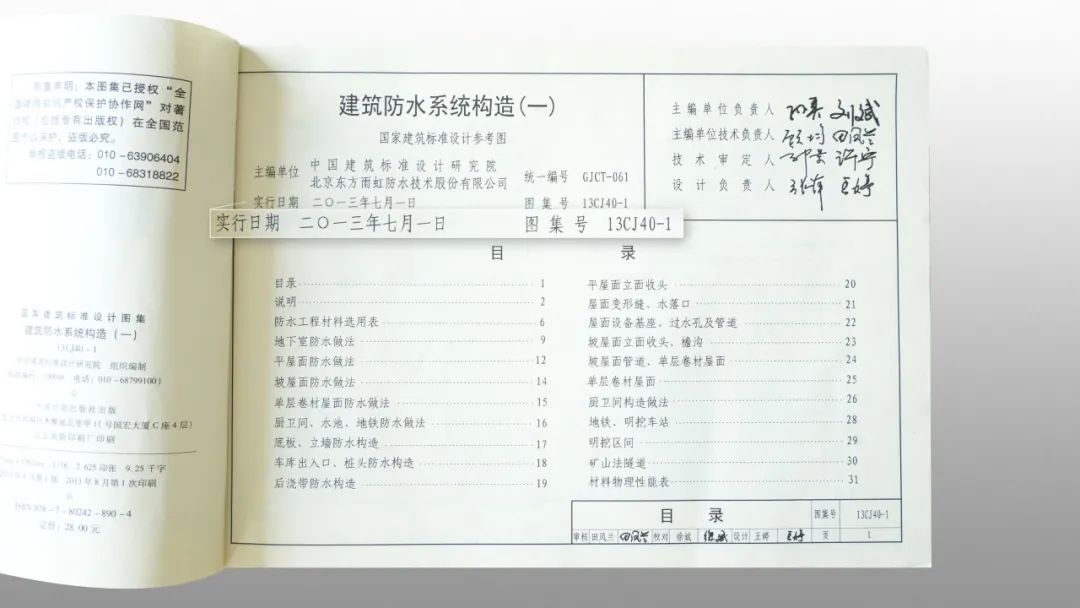 郑重声明：本图集已授权“全
国律师知识产权保护协作网”对著
作权（包括专有出版权）在全国范
围予以保护，盗版必究。
举报盗版电话：010-63906404
010-68318822
国家建筑标准设计图集
建筑防水系统构造（一）
13CJ40-1
组织编制
电话：010-68799100）
☆
出版社出版
号国宏大厦C座4层）
印刷厂印刷
1/16 2.625印张 9.25千字
2013年8月第1次印刷
☆
ISBN 978-7-80242-890-4
定价：28.00元
建筑防水系统构造(一)
国家建筑标准设计参考图
主编单位 中国建筑标准设计研究院
北京东方雨虹防水技术股份有限公司
统一编号 GJCT-061
实行日期 二〇一三年七月一日 图集号 13CJ40-1
实行日期 二〇一三年七月一日 图集号 13CJ40-1
主编单位负责人
主编单位技术负责人
技术审定人
设计负责人
目 录
目录 1
说明 2
防水工程材料选用表 6
地下室防水做法 9
平屋面防水做法 12
坡屋面防水做法 14
单层卷材屋面防水做法 15
厨卫间、水池、地铁防水做法 16
底板、立墙防水构造 17
车库出入口、桩头防水构造 18
后浇带防水构造 19
平屋面立面收头 20
屋面变形缝、水落口 21
屋面设备基座、过水孔及管道 22
坡屋面立面收头、檐沟 23
坡屋面管道、单层卷材屋面 24
单层卷材屋面 25
厨卫间构造做法 26
地铁、明挖车站 28
明挖区间 29
矿山法隧道 30
材料物理性能表 31
目 录 图集号 13CJ40-1
审核 田凤兰 校对 徐斌 设计 王婷 王婷 页 1